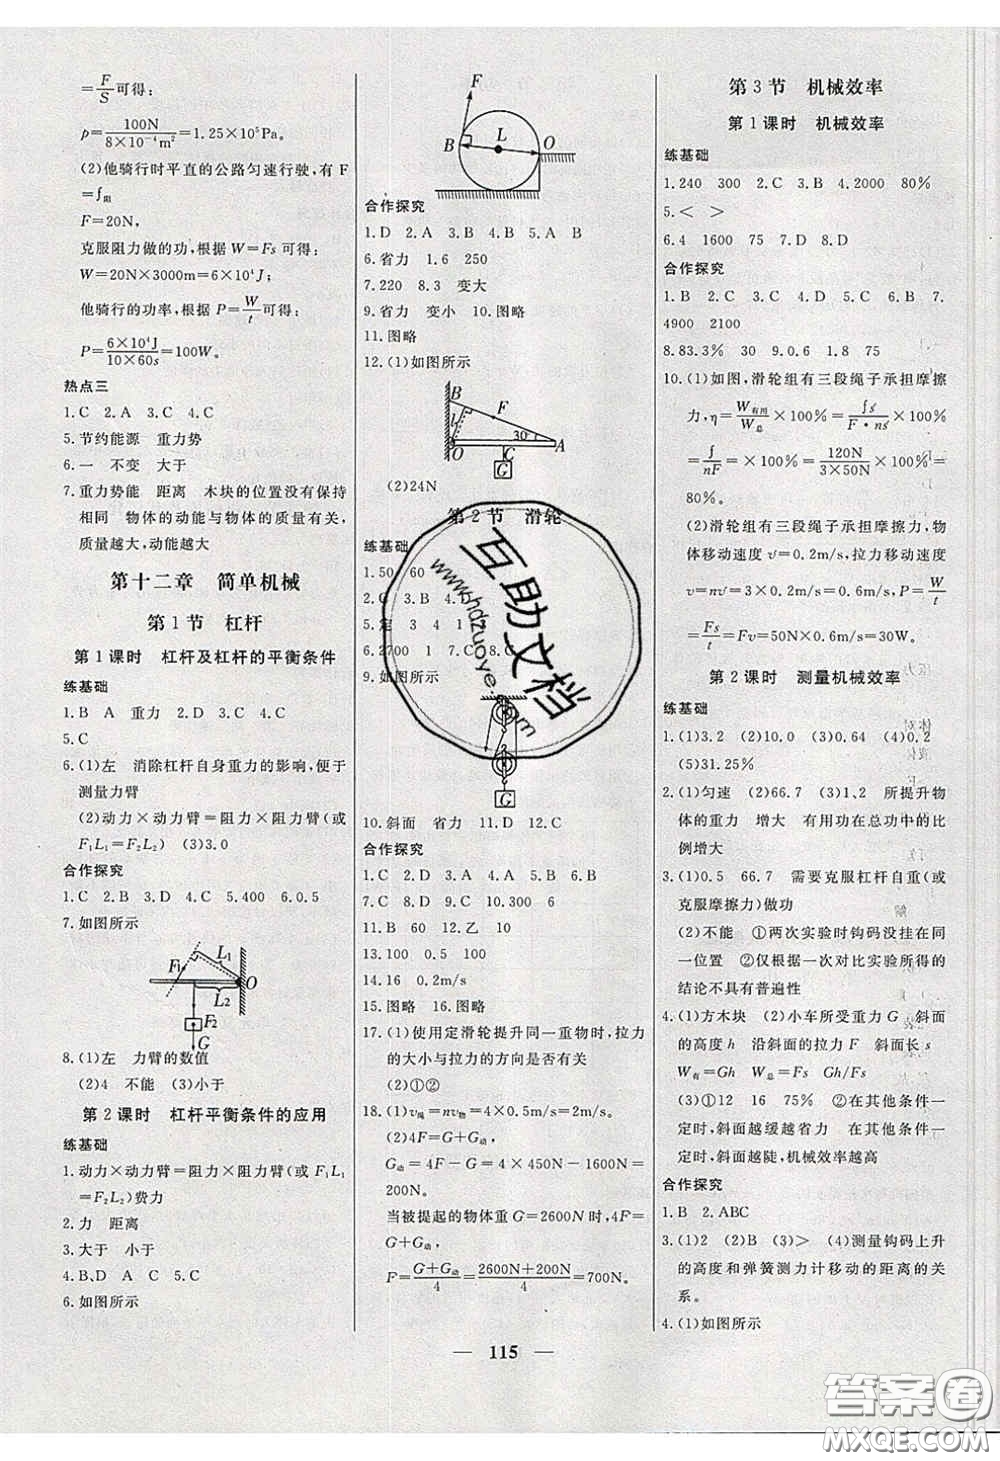 =F/S可得:
p=100N/8×10⁻⁴m²=1.25×10⁵Pa。
(2)他骑行时平直的公路匀速行驶,有 F
=f阻
F=20N,
克服阻力做的功,根据 W=Fs 可得:
W=20N×3000m=6×10⁴J;
他骑行的功率,根据 P=W/t可得:
P=6×10⁴J/10×60s=100W。
热点三
1.C 2.A 3.C 4.C
5.节约能源 重力势
6.一 不变 大于
7.重力势能 距离 木块的位置没有保持
相同 物体的动能与物体的质量有关,
质量越大,动能越大
第十二章 简单机械
第1节 杠杆
第1课时 杠杆及杠杆的平衡条件
练基础
1.B A 重力 2.D 3.C 4.C
5.C
6.(1)左 消除杠杆自身重力的影响,便于
测量力臂
(2)动力×动力臂=阻力×阻力臂(或
F₁L₁=F₂L₂) (3)3.0
合作探究
1.C 2.B 3.D 4.C 5.400 6.0.5
7.如图所示
F₁ L₁ O
L₂
F₂
G
8.(1)左 力臂的数值
(2)4 不能 (3)小于
第2课时 杠杆平衡条件的应用
练基础
1.动力×动力臂=阻力×阻力臂(或 F₁L₁
=F₂L₂)费力
2.力 距离
3.大于 小于
4.B、D A C 5.C
6.如图所示
F
B L O
合作探究
1.D 2.A 3.B 4.B 5.A B
6.省力 1.6 250
7.220 8.3 变大
9.省力 变小 10.图略
11.图略
12.(1)如图所示
B
l F
30°
O C A
G
(2)24N
第2节 滑轮
练基础
1.50 60
5.定 3 4 1
6.2700 1
9.如图所示
G
10.斜面 省力 11.D 12.C
合作探究
1.C 2.D 3.A 4.B 5.B 6.B
7.C 8.D 9.D 10.300 6
11.B 60 12.乙 10
13.100 0.5 100
14.16 0.2m/s
15.图略 16.图略
17.(1)使用定滑轮提升同一重物时,拉力
的大小与拉力的方向是否有关
(2)①②
18.(1)v绳=nv物=4×0.5m/s=2m/s。
(2)4F=G+G动
G动=4F-G=4×450N-1600N=
200N。
当被提起的物体重 G=2600N 时,4F=
G+G动,
F=G+G动/4=2600N+200N/4=700N。
第3节 机械效率
第1课时 机械效率
练基础
1.240 300 2.C 3.B 4.2000 80%
5.< >
6.4 1600 75 7.D 8.D
合作探究
1.B 2.C 3.C 4.B 5.C 6.B 7.
4900 2100
8.83.3% 30 9.0.6 1.8 75
10.(1)如图,滑轮组有三段绳子承担摩擦
力,η=W有用/W总×100%=fs/F·ns×100%
=f/nF×100%=120N/3×50N×100%=
80%。
(2)滑轮组有三段绳子承担摩擦力,物
体移动速度 v=0.2m/s,拉力移动速度
v=nv=3×0.2m/s=0.6m/s,P=W/t
=Fs/t=Fv=50N×0.6m/s=30W。
第2课时 测量机械效率
练基础
1.(1)3.2 (2)10.0 (3)0.64 (4)0.2
(5)31.25%
2.(1)匀速 (2)66.7 (3)1、2 所提升物
体的重力 增大 有用功在总功中的比
例增大
3.(1)0.5 66.7 需要克服杠杆自重(或
克服摩擦力)做功
(2)不能 ①两次实验时钩码没挂在同
一位置 ②仅根据一次对比实验所得的
结论不具有普遍性
4.(1)方木块 (2)小车所受重力 G 斜面
的高度 h 沿斜面的拉力 F 斜面长 s
W有=Gh W总=Fs
(3)①12 16 75% ②在其他条件一
定时,斜面越缓越省力 在其他条件一
定时,斜面越陡,机械效率越高
合作探究
1.B 2.ABC
3.(1)2 (2)B (3)> (4)测量钩码上升
的高度和弹簧测力计移动的距离的关
系。
4.(1)如图所示
115
互助文档
www.hdzuoye.com
答案卷
MXQE.COM